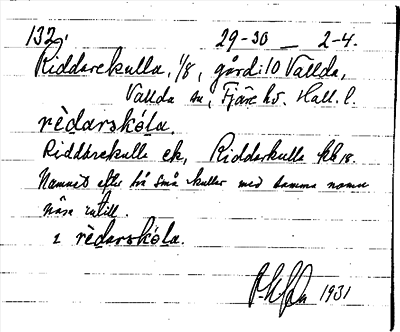 132.   29-30 — 2-4.
Riddarekulla, 1/8, gård i 10 Vallda,
Vallda sn, Fjäre hd. Hall. l.
rèdarskóla.
Riddarekulla ek, Riddarkulla kb 18.
Namnet efter två små kullar med samma namn
nära intill.
i rèdarskóla.
1931